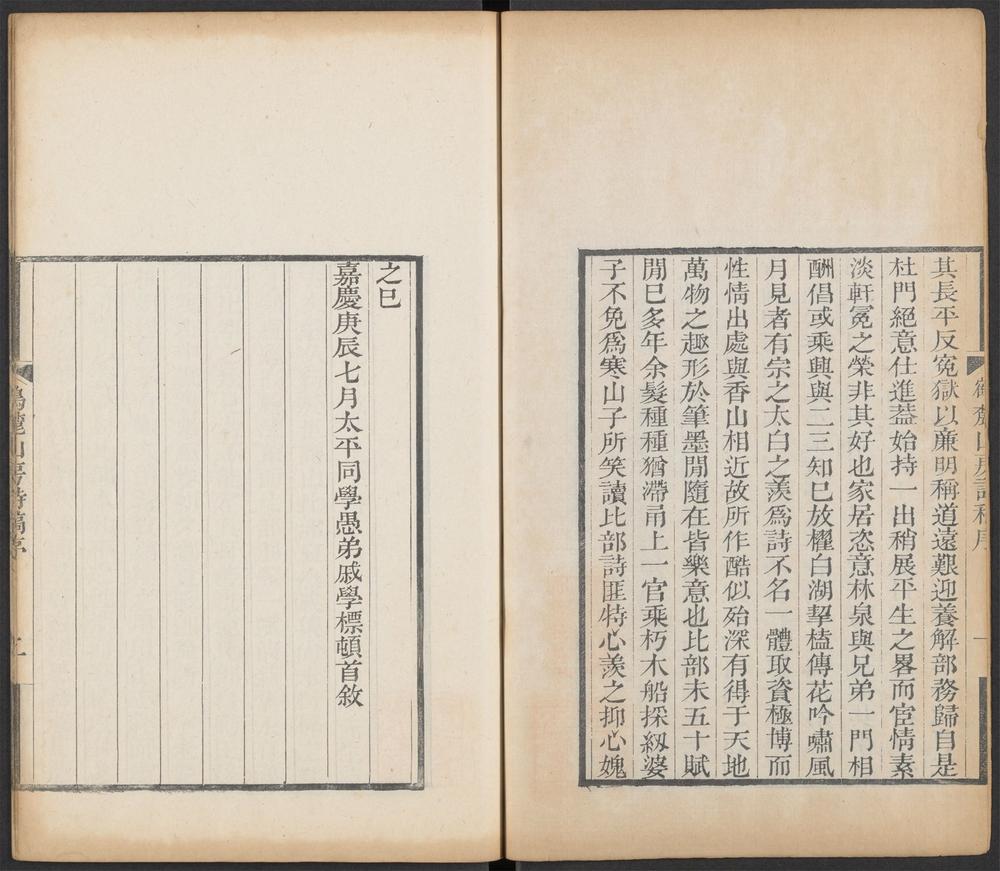 其長平反冤獄以廉明稱道遠艱迎養解部務歸自是
杜門絕意仕進葢始持一出稍展平生之畧而宦情素
淡軒冕之榮非其好也家居恣意林泉與兄弟一門相
酬倡或乘興與二三知巳放櫂白湖挈榼傳花吟嘯風
月見者有宗之太白之羨爲詩不名一體取資極博而
性情出處與香山相近故所作酷似殆深有得于天地
萬物之趣形於筆墨閒隨在皆樂意也比部未五十賦
閒巳多年余髮種種猶滯甬上一官乘朽木船採級婆
子不免爲寒山子所笑讀比部詩匪特心羨之抑心媿
之巳
嘉慶庚辰七月太平同學愚弟戚學標頓首敘
山房詩稿序